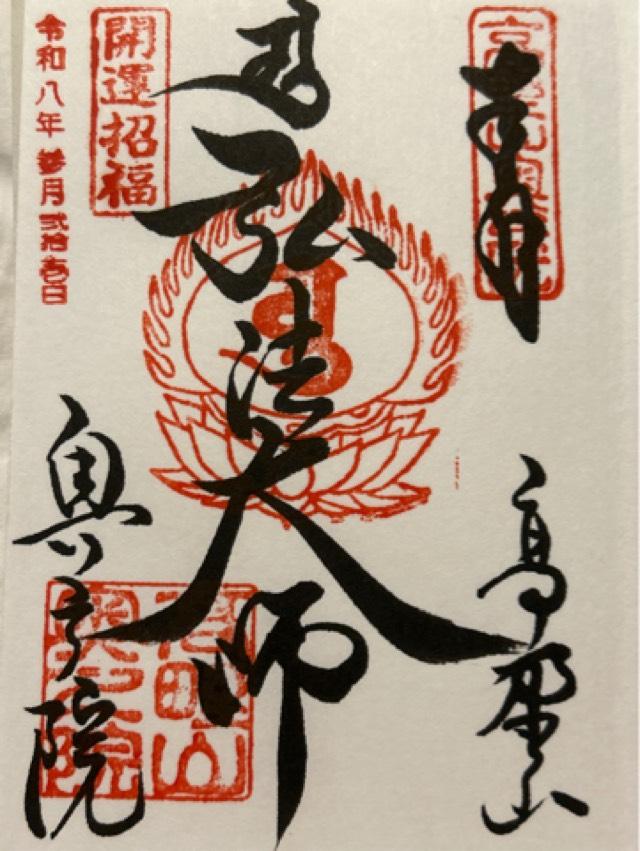 奉拝
高野山
弘法大師
開運招福
令和八年参月弐拾壱日
奥之院
高野山
奥之院